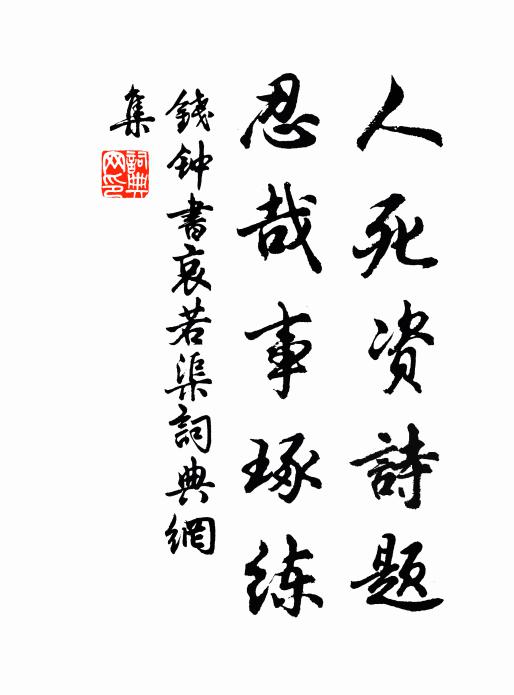 人死资詩题
忍哉事琢练
錢钟書哀若渠詞典網
集
詞典
网印